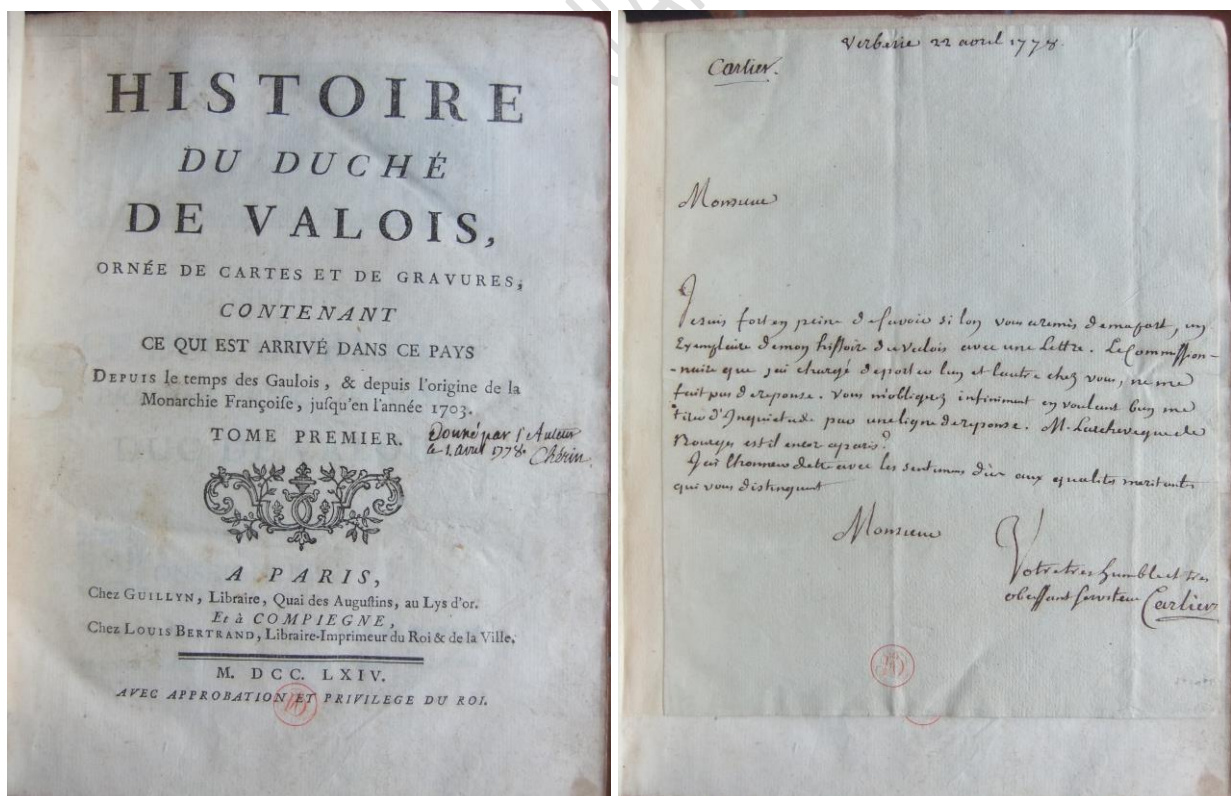 HISTOIRE
DU DUCHÉ
DE VALOIS,
ORNÉE DE CARTES ET DE GRAVURES,
CONTENANT
CE QUI EST ARRIVÉ DANS CE PAYS
DEPUIS le temps des Gaulois, & depuis l'origine de la
Monarchie Françoiſe, juſqu'en l'année 1703.
TOME PREMIER.
Donné par l'Auteur
le 1 avril 1778. Chérin.
A PARIS,
Chez GUILLYN, Libraire, Quai des Auguſtins, au Lys d'or.
Et à COMPIEGNE,
Chez LOUIS BERTRAND, Libraire-Imprimeur du Roi & de la Ville.
M. DCC. LXIV.
AVEC APPROBATION ET PRIVILEGE DU ROI.
Verberie 22 avril 1778.
Cartier.
Monsieur
Je suis fort en peine de savoir si lon vous a remis de ma part, un
Exemplaire de mon histoire du valois avec une Lettre. Le Commission-
-naire que jai chargé de porter lun et lautre chez vous, ne me
fait pas de reponse. vous m'obligerez infiniment en voulant bien me
tirer d'Inquietude par une ligne de reponse. M. Larcheveque de
Bourges est il encor a paris?
J'ai lhonneur detre avec les sentimens dûs aux qualités meritantes
qui vous distinguent
Monsieur
Votre tres humble et tres
obeissant serviteur Carlier